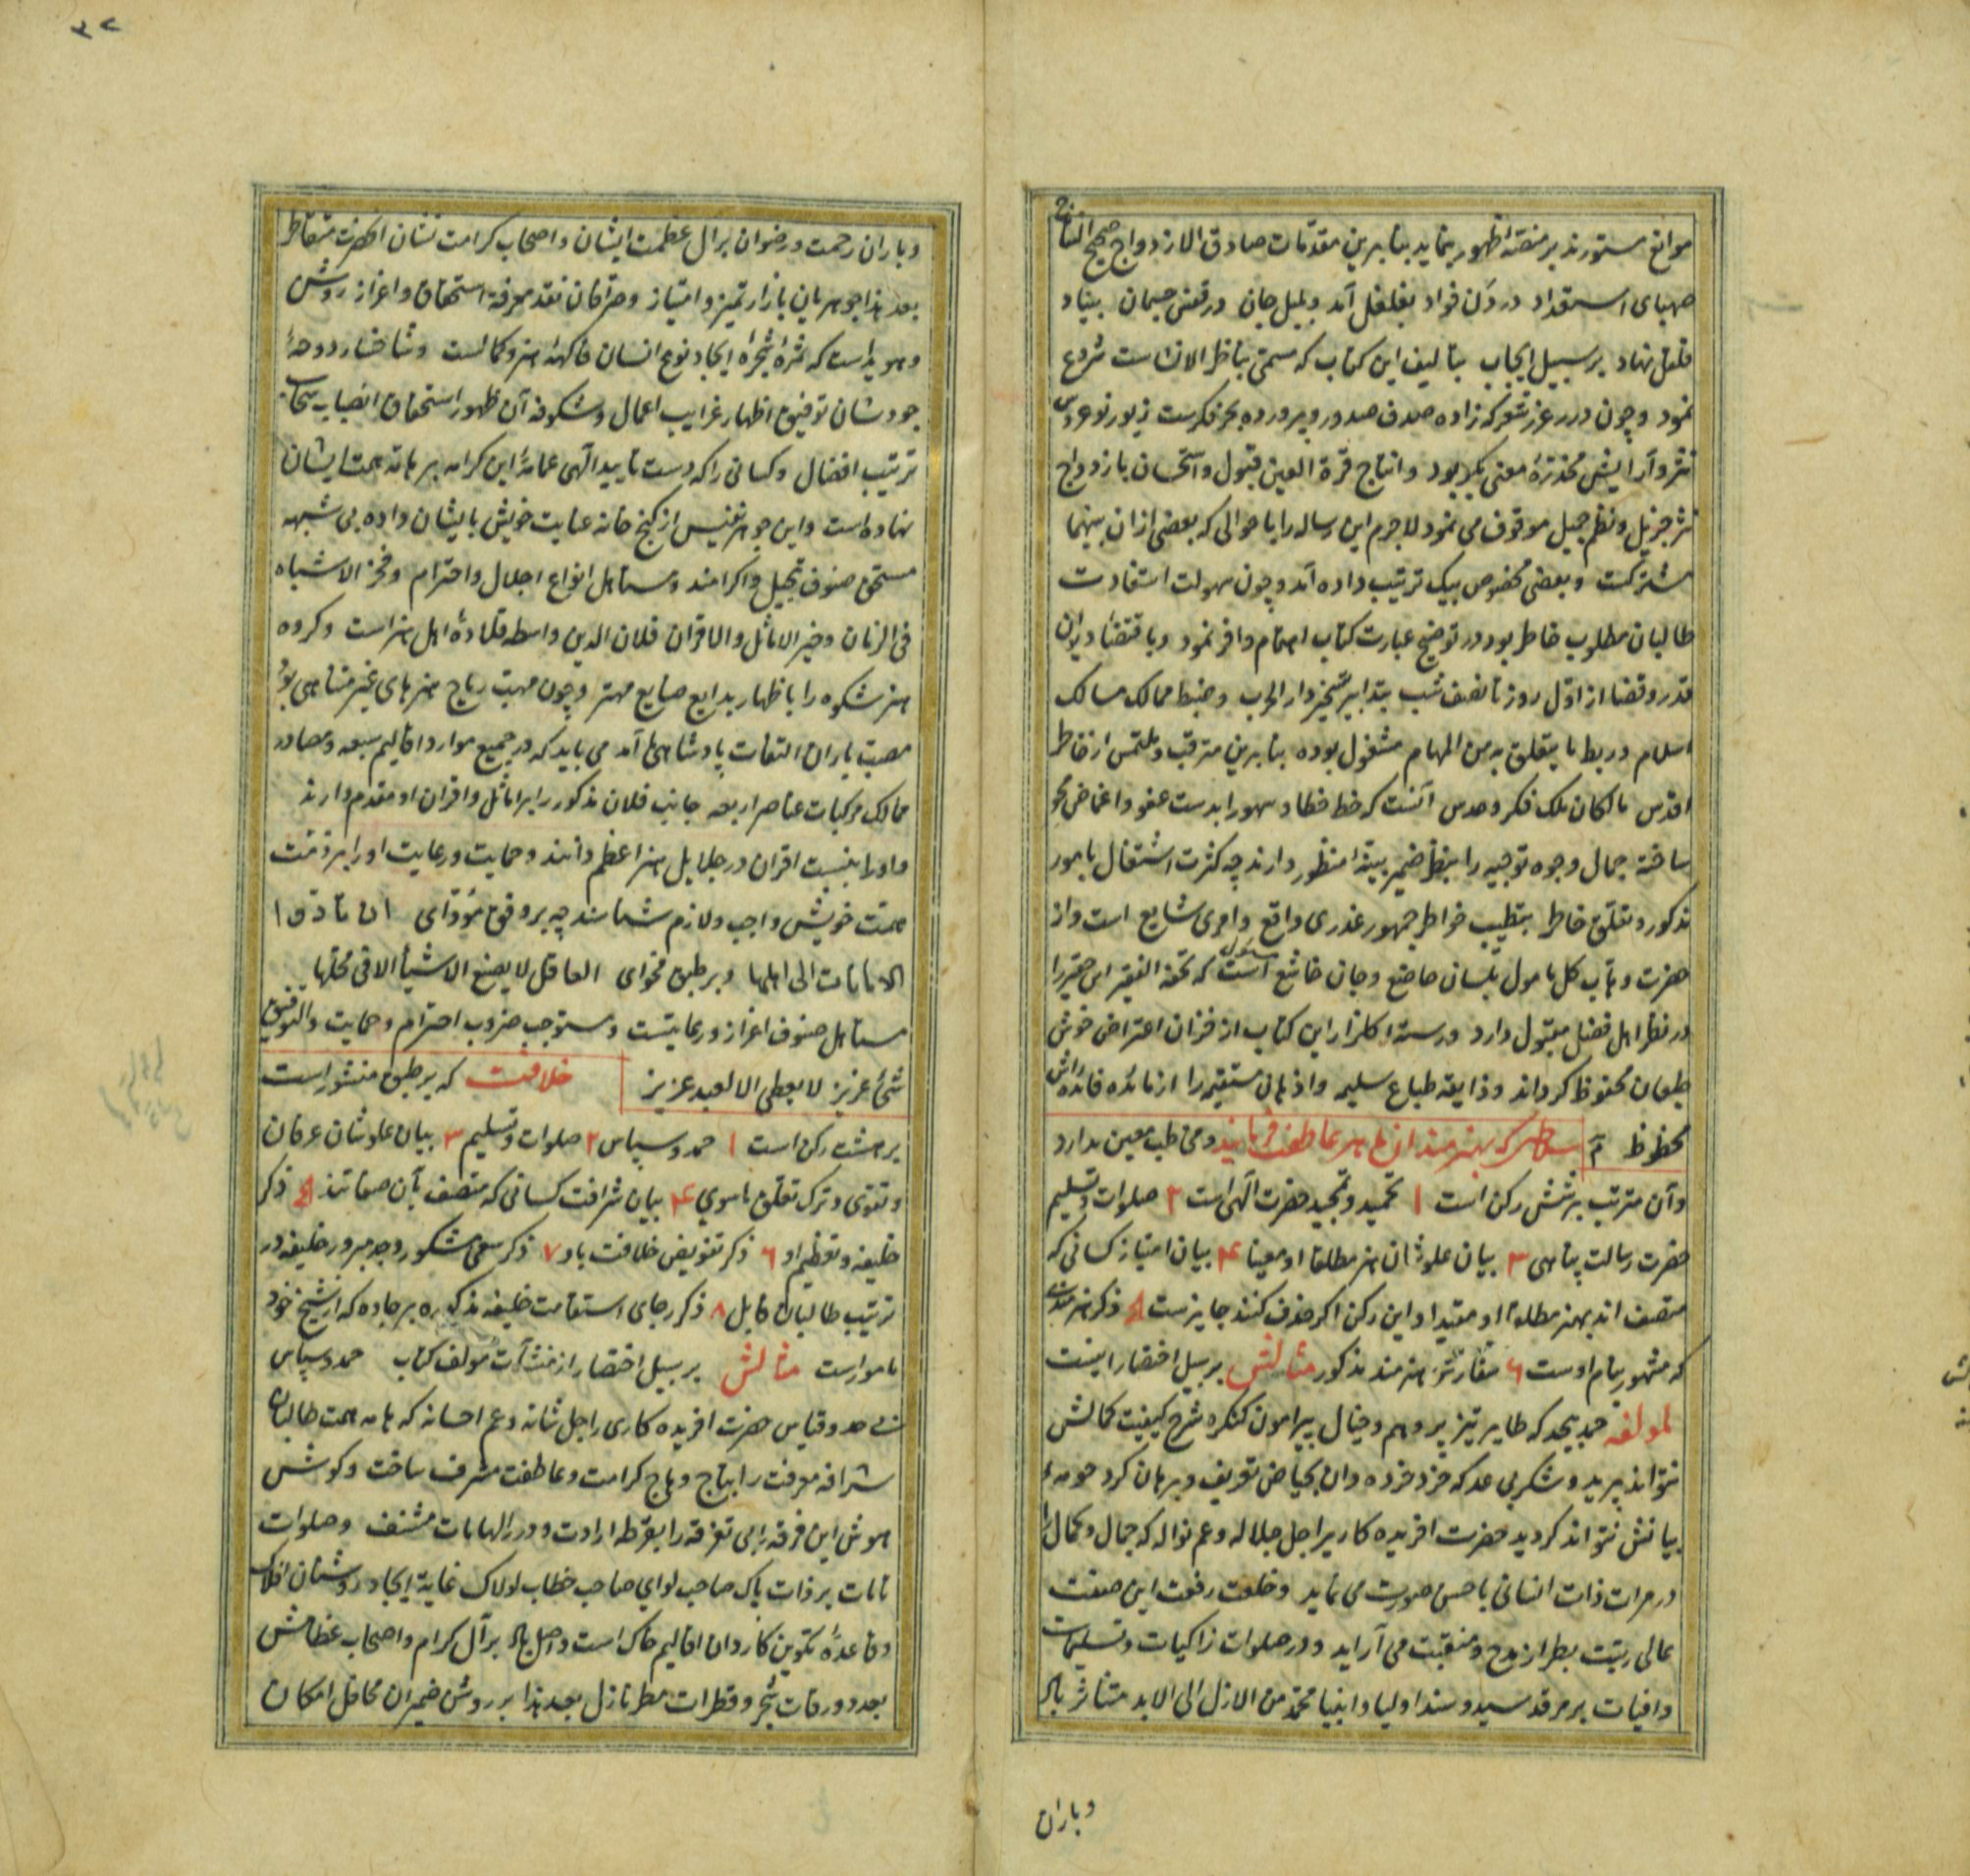 موانع مستورند بر منصّهٔ ظهور بنماید بنابرین مقدّمات صادق الازدواج صحیح النتاج
صهبای استعداد در دَن فواد بغلغل آمد و بلبل جان در قفس جسمان بنیاد
قلقل نهاد بر سبیل ایجاب بتالیف این کتاب که مسمّی بناظر الانشاست شروع
نمود و چون درر غرر شعر که زاده صدف صدور و پرورده بحر فکرست زیور نو عروس
نثر و آرایش مخدّرهٔ معنی بکر بود و انتاج قرّة العین قبول و استحسان بازدواج
نثر جزیل و نظم جمیل موقوف می نمود لاجرم این رساله را با حوالی که بعضی ازان بینهما
مشترکست و بعضی مخصوص بیک ترتیب داده آمد و چون سهولت استفادت
طالبان مطلوب خاطر بود در توضیح عبارت کتاب اهتمام وافر نمود و باقتضاء دیوان
قدر و قضا از اوّل روز تا نصف شب بتدابیر تسخیر دار الحرب و ضبط ممالک مسالک
اسلام و ربط ما یتعلق به من المهام مشغول بوده بنابرین مترقب و ملتمس از خاطر
اقدس مالکان ملک فکر و حدس آنست که خط خطا و سهو را بدست عفو و اغماض محو
ساخته جمال وجوه توجیه را بنظر ضمیر بینا منظور دارند چه کثرت اشتغال بامور
مذکور و تعلّق خاطر بتطییب خواطر جمهور عذری واقع و امری شایع است و از
حضرت وهاب کل مامول بلسان خاضع و جنان خاشع مسئول است که تحفة الفقیر این حقیر را
در نظر اهل فضل مقبول دارد و رستهٔ گلزار این کتاب از خزان اعتراض خوش
طبعان محفوظ گرداند و ذایقه طباع سلیم و اذهان مستقیم را از مائده فائده اش
محظوظ م سطری که بهنرمندان ماهر عاطفت فرمایند و مخاطب معین ندارد
و آن مترتب بر شش رکن است ۱ تحمید و تمجید حضرت الهی است ۲ صلوات و تسلیم
حضرت رسالت پناهی ۳ بیان علو شان هنر مطلقا او معینا ۴ بیان امتیاز کسانی که
متصف اند بهنر مطلقا او مقیدا و این رکن اگر حذف کنند جایزست ۵ ذکر هنرمندی
که مشهور بنام اوست ۶ هنرمند مذکور مثالش بر سبیل اختصار اینست
لمولفه حمد بیحد که طایر تیز پر وهم و خیال پیرامون کنگره شرح کیفیت کمالش
نتواند پرید و شکر بی عد که خرد خرده دان بحیاض تعریف و برهان گرد حومهٔ
بیانش نتواند گردید حضرت آفریده کاریرا جل جلاله و عم نواله که جمال و کمال را
در مرات ذات انسانی باحسن صورت می نماید و خلعت رفعت این صفت
عالی رتبت بطراز مدح و منقبت می آراید و درر صلوات زاکیات و تسلیمات
وافیات بر مرقد سید و سند اولیا و انبیا محمّد من الازل الی الابد متناثر باد
و باران
۳۲
و باران رحمت و رضوان برال عظمت ایشان و اصحاب کرامت نشان انحضرت متقاطر
بعد هذا جوهریان بازار تمیز و امتیاز و صرّافان نقد معرفة استحقاق و اعزاز روشن
و هویداست که ثمرهٔ شجرهٔ ایجاد نوع انسان فاکههٔ هنر و کمالست و شاخسار دوحهٔ
جود شان توفیق اظهار غرایب اعمال و شکوفه آن ظهور استحقاق انصباب سحاب
ترتیب افضال و کسانی را که دست تایید الهی عمامهٔ این کرامه بر هامهٔ همت ایشان
نهاده است و این جوهر نفیس از گنج خانه عنایت خویش بایشان داده بی شبهه
مستحق صنوف تبجیل و اکرامند و مستاهل انواع اجلال و احترام و فخر الاشباه
فی الزمان و خیر الاماثل و الاقران فلان الدین واسطه قلادهٔ اهل هنر است و گروه
هنر شکوه را باظهار بدایع صنایع مهتر و چون مهبّ ریاح هنرهای غیر متناهی بود
مصبّ باران التفات پادشاهی آمد می باید که در جمیع موارد اقالیم سبعه و مصادر
ممالک مرکبات عناصر اربعه جانب فلان مذکور را بر اماثل و اقران او مقدم دارند
و او را بنسبت اقران در جلایل هنر اعظم دانند و حمایت و رعایت او را بر ذمّت
همّت خویش واجب و لازم شناسند چه بر وفق مؤدّای ان تادّوا
الامانات الی اهلها و بر طبق فحوای العاقل لا یضع الاشیاء الا فی محلّها
مستاهل صنوف اعزاز و رعایتست و مستوجب ضروب احترام و حمایت و التوفیق
شیٔ عزیز لا یعطی الا لعبد عزیز خلافت که بر طبق منشور است
بر هشت رکن است ۱ حمد و سپاس ۲ صلوات و تسلیم ۳ بیان علو شان عرفان
و تقوی و ترک تعلّق ماسوی ۴ بیان شرافت کسانی که متصف بآن صفاتند ۵ ذکر
خلیفه و تعظیم او ۶ ذکر تفویض خلافت باو ۷ ذکر سعی مشکور و جد مبرور خلیفه در
ترتیب طالبان قابل ۸ ذکر رجای استقامت خلیفه مذکوره بر جاده که از شیخ خود
مامور است مثالش بر سبیل اختصار از منشآت مؤلف کتاب حمد و سپاس
بی حد و قیاس حضرت آفریده کاری را جل شانه و عم احسانه که هامه همت طالبان
شرافه معرفت را بتاج وهاج کرامت و عاطفت مشرف ساخت و گوش
هوش این فرقه بی تفرقه را بقرطهٔ ارادت و درر الهامات مشنف و صلوات
تامات بر ذات پاک صاحب لوای صاحب خطاب لولاک غایة ایجاد روشنان افلاک
و قاعدهٔ تکوین کاردان اقالیم خاک است واصل باد بر آل کرام و اصحاب عظامش
بعدد ورقات شجر و قطرات مطر نازل بعد هذا بر روشن ضمیران محافل امکان